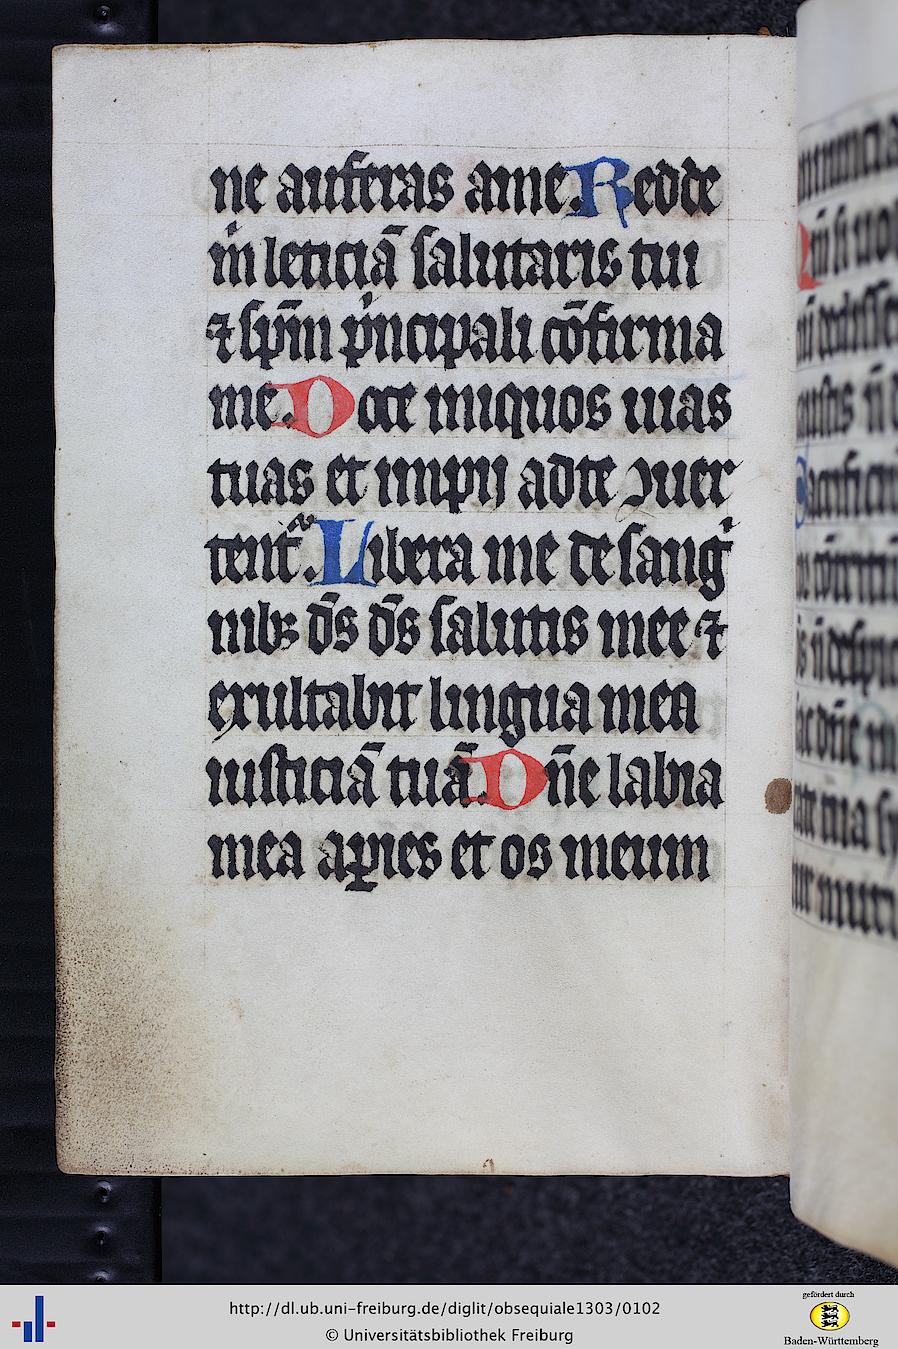 ne auferas ame. Redde
m̍ leticiā salutaris tui
⁊ sp̄m p̍ncipali cōfirma
me. Doce iniquos uias
tuas et impii adte ꝯuer
tent᷑. Libera me de sang̍
nibꝫ ds̄ ds̄ salutis mee ⁊
exultabit lingua mea
iusticiā tuā. Dn̄e labia
mea aꝑies et os meum
http://dl.ub.uni-freiburg.de/diglit/obsequiale1303/0102
© Universitätsbibliothek Freiburg
gefördert durch
Baden-Württemberg